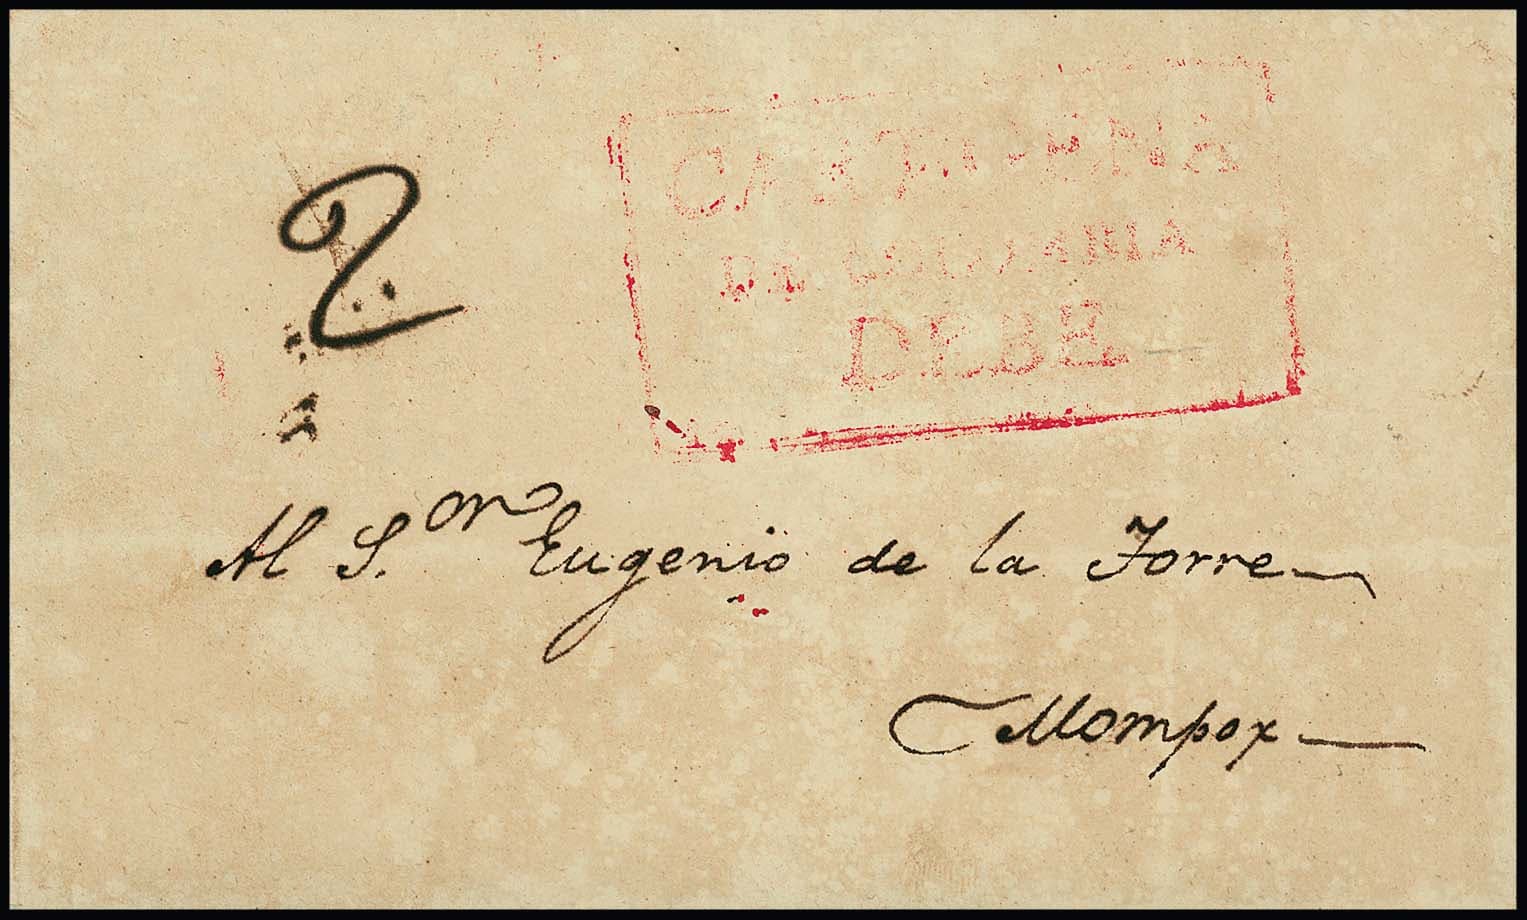 2
CARTAGENA
DE COLOMBIA
DEBE
Al S.^or Eugenio de la Torre
Mompox